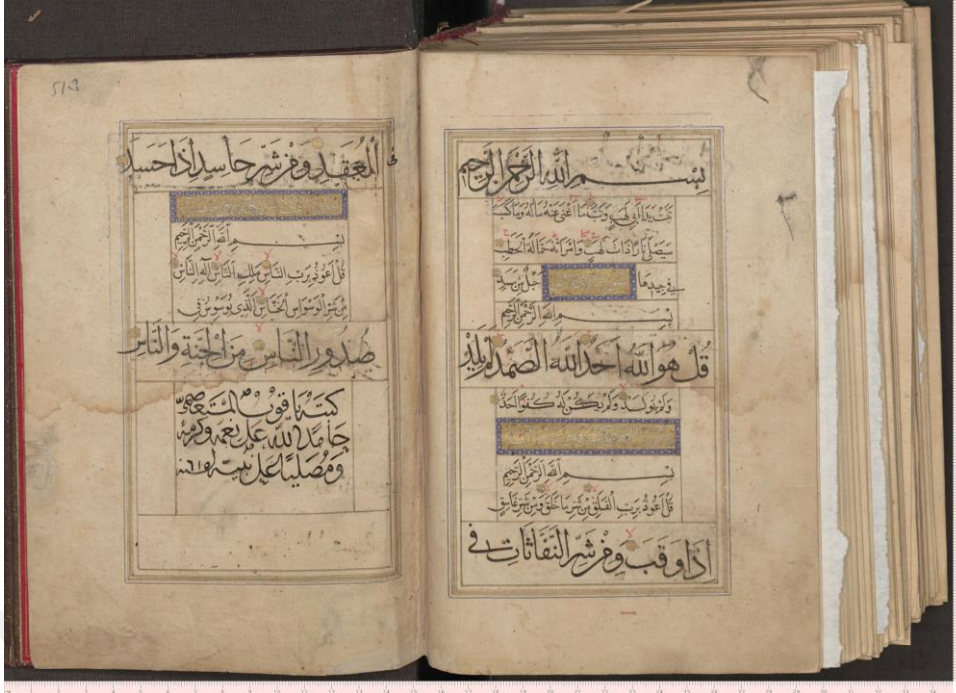 بِسْمِ اللَّهِ الرَّحْمَنِ الرَّحِيمِ
تَبَّتْ يَدَا أَبِي لَهَبٍ وَتَبَّ مَا أَغْنَى عَنْهُ مَالُهُ وَمَا كَسَبَ
سَيَصْلَى نَارًا ذَاتَ لَهَبٍ وَامْرَأَتُهُ حَمَّالَةَ الْحَطَبِ
فِي جِيدِهَا حَبْلٌ مِنْ مَسَدٍ
بِسْمِ اللَّهِ الرَّحْمَنِ الرَّحِيمِ
قُلْ هُوَ اللَّهُ أَحَدٌ اللَّهُ الصَّمَدُ لَمْ يَلِدْ
وَلَمْ يُولَدْ وَلَمْ يَكُنْ لَهُ كُفُوًا أَحَدٌ
بِسْمِ اللَّهِ الرَّحْمَنِ الرَّحِيمِ
قُلْ أَعُوذُ بِرَبِّ الْفَلَقِ مِنْ شَرِّ مَا خَلَقَ وَمِنْ شَرِّ غَاسِقٍ
إِذَا وَقَبَ وَمِنْ شَرِّ النَّفَّاثَاتِ فِي
513
الْعُقَدِ وَمِنْ شَرِّ حَاسِدٍ إِذَا حَسَدَ
بِسْمِ اللَّهِ الرَّحْمَنِ الرَّحِيمِ
قُلْ أَعُوذُ بِرَبِّ النَّاسِ مَلِكِ النَّاسِ إِلَهِ النَّاسِ
مِنْ شَرِّ الْوَسْوَاسِ الْخَنَّاسِ الَّذِي يُوَسْوِسُ فِي
صُدُورِ النَّاسِ مِنَ الْجِنَّةِ وَالنَّاسِ
كتبه ياقوت المستعصمي
حامدا لله على نعمه وكرمه
ومصليا على نبيه